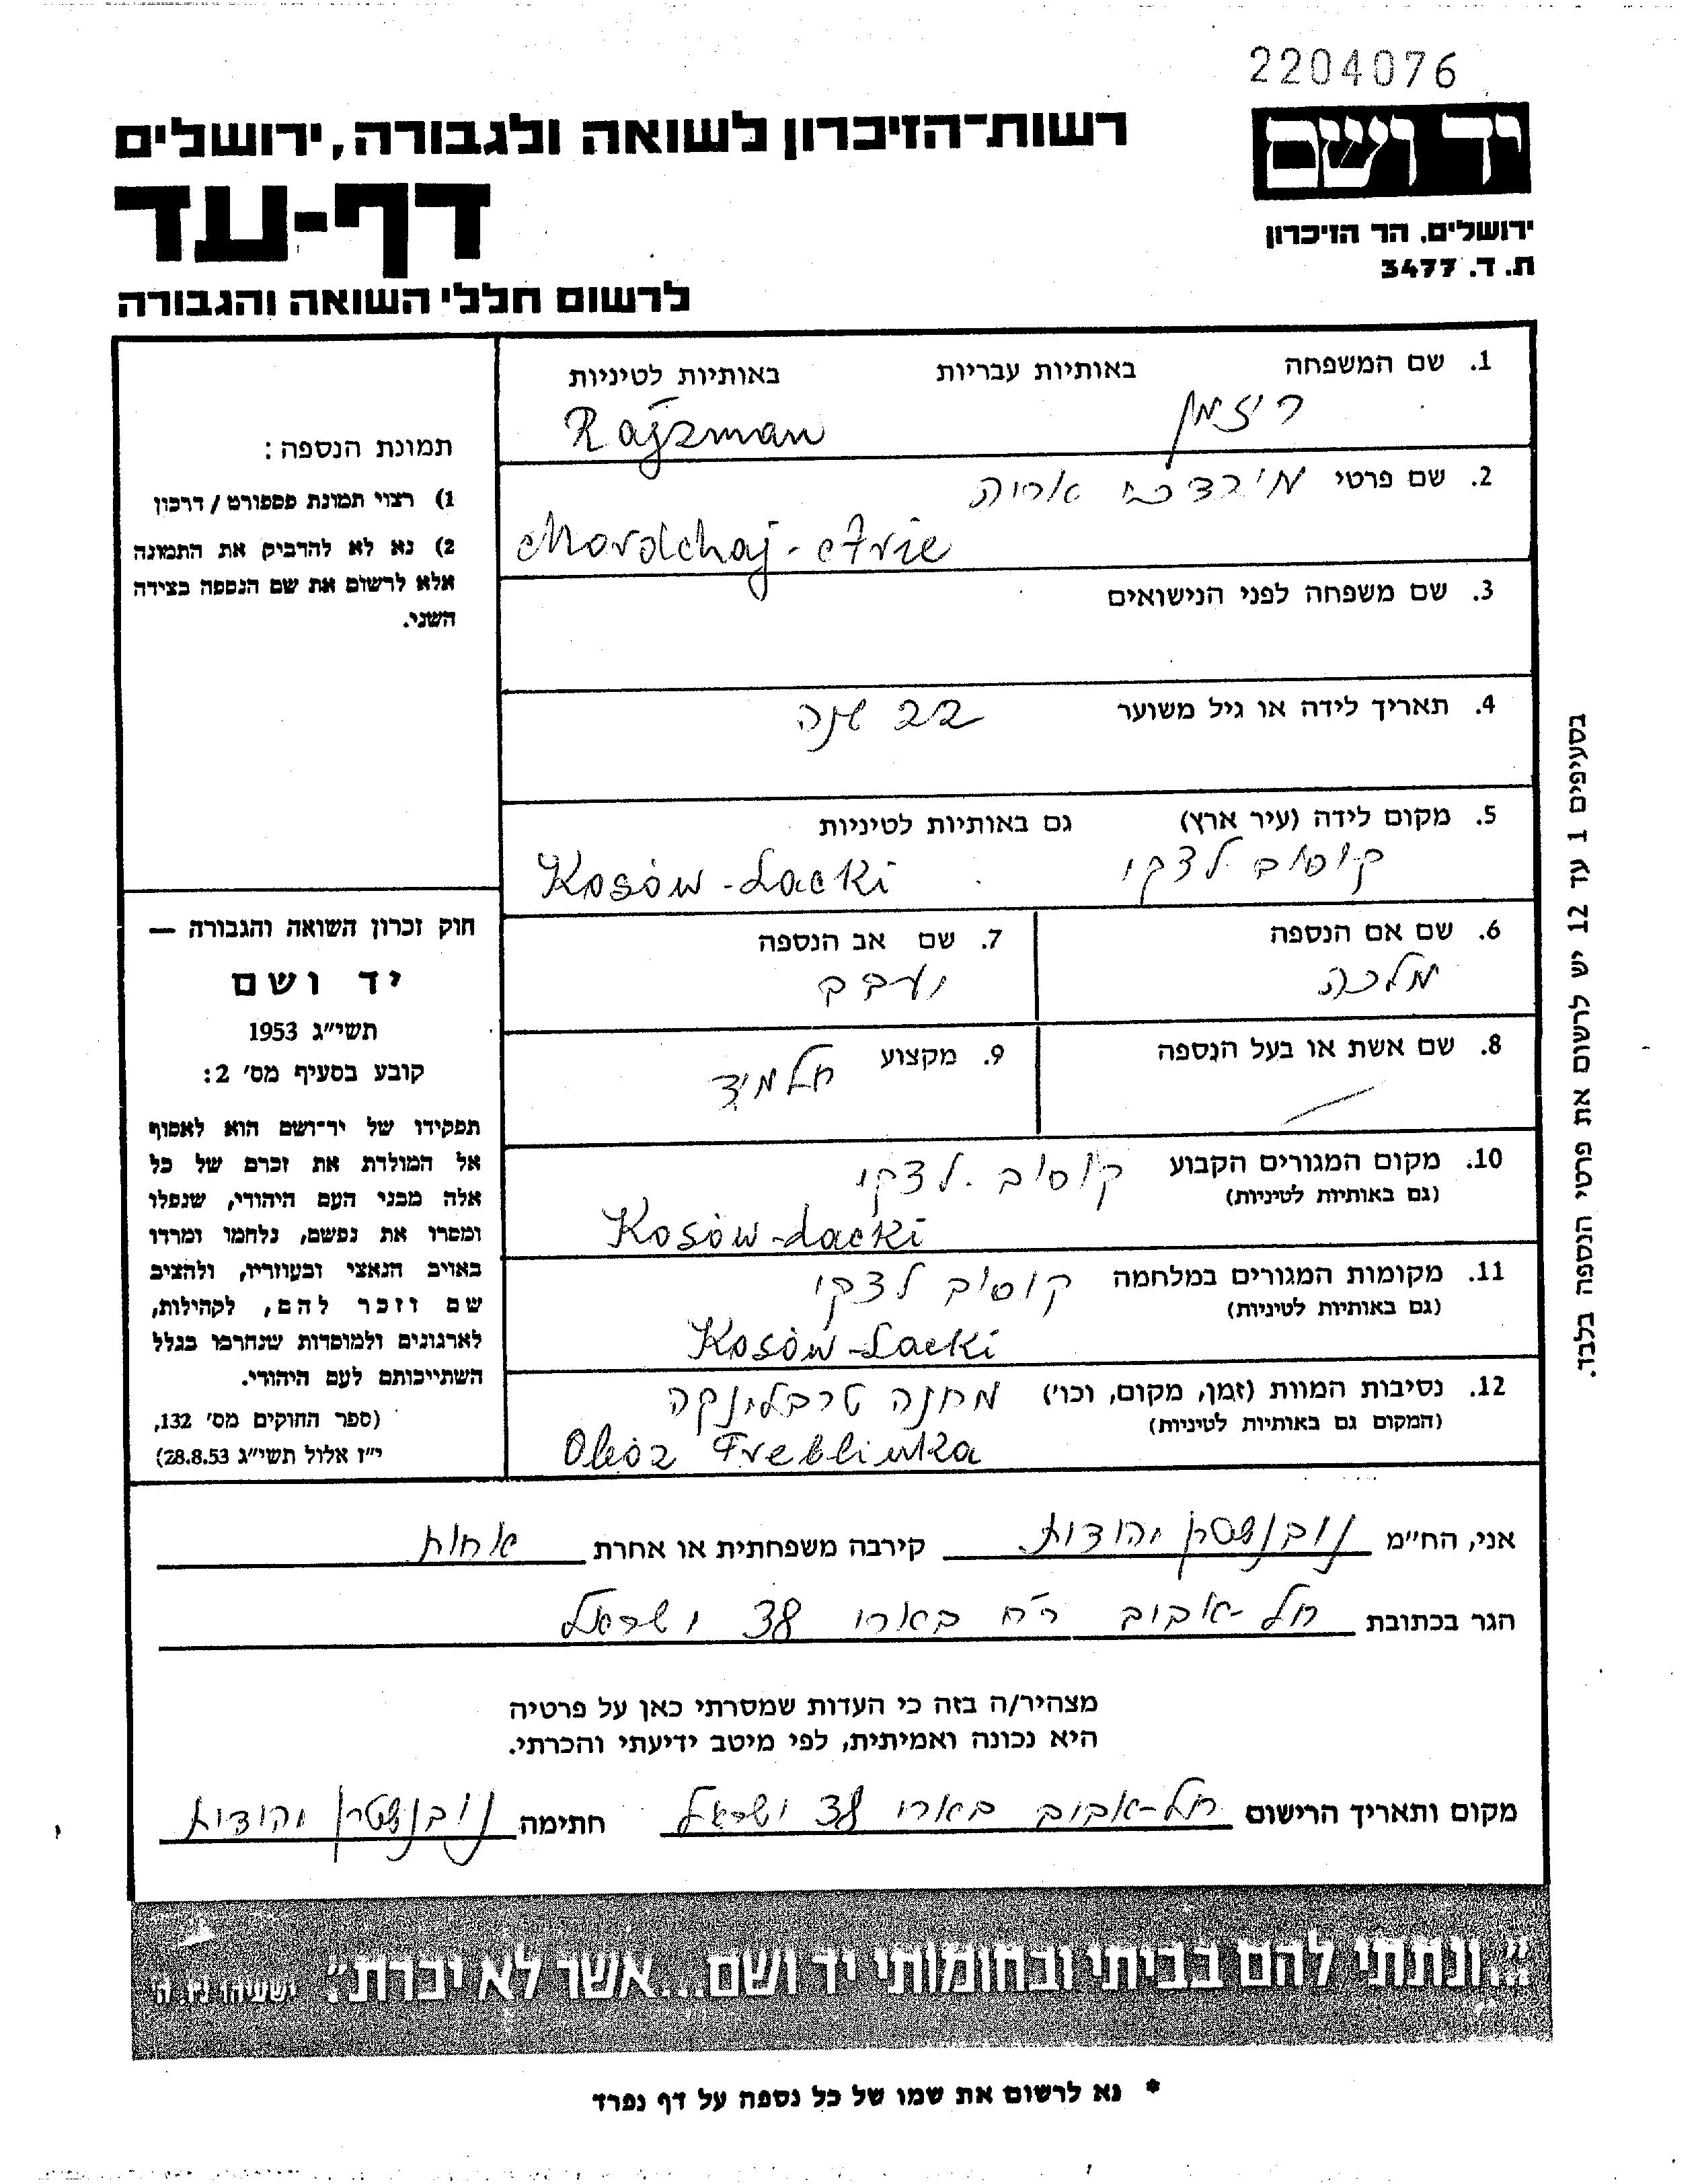 2204076
יד ושם
ירושלים, הר הזיכרון
ת. ד. 3477
רשות-הזיכרון לשואה ולגבורה, ירושלים
דף-עד
לרשום חללי השואה והגבורה
1. שם המשפחה באותיות עבריות באותיות לטיניות
ריזמן Rajzman
2. שם פרטי מירדכי אריה
Mordchaj - Arie
3. שם משפחה לפני הנישואים
4. תאריך לידה או גיל משוער 22 שנה
5. מקום לידה (עיר ארץ) גם באותיות לטיניות
קוסוב לצקי Kosów - Lacki
6. שם אם הנספה 7. שם אב הנספה
מלכה יעקב
8. שם אשת או בעל הנספה 9. מקצוע תלמיד
10. מקום המגורים הקבוע קוסוב לצקי
(גם באותיות לטיניות)
Kosów - Lacki
11. מקומות המגורים במלחמה קוסוב לצקי
(גם באותיות לטיניות)
Kosów - Lacki
12. נסיבות המוות (זמן, מקום, וכו') מחנה טרבלינקה
(המקום גם באותיות לטיניות)
Obóz Trebblinka
תמונת הנספה:
1) רצוי תמונת פספורט / דרכון
2) נא לא להדביק את התמונה
אלא לרשום את שם הנספה בצידה
השני.
חוק זכרון השואה והגבורה —
יד ושם
תשי"ג 1953
קובע בסעיף מס' 2:
תפקידו של יד-ושם הוא לאסוף
אל המולדת את זכרם של כל
אלה מבני העם היהודי, שנפלו
ומסרו את נפשם, נלחמו ומרדו
באויב הנאצי ובעוזריו, ולהציב
שם וזכר להם, לקהילות,
לארגונים ולמוסדות שנחרבו בגלל
השתייכותם לעם היהודי.
(ספר החוקים מס' 132,
י"ז אלול תשי"ג 28.8.53)
בסעיפים 1 עד 12 יש לרשום את פרטי הנספה בלבד.
אני, הח"מ יהודית קירבה משפחתית או אחרת אחות
הגר בכתובת תל-אביב רח בארי 38 ישראל
מצהיר/ה בזה כי העדות שמסרתי כאן על פרטיה
היא נכונה ואמיתית, לפי מיטב ידיעתי והכרתי.
מקום ותאריך הרישום תל-אביב בארי 38 ישראל חתימה יהודית
"...ונתתי להם בביתי ובחומותי יד ושם...אשר לא יכרת". ישעיהו נו, ה'
* נא לרשום את שמו של כל נספה על דף נפרד